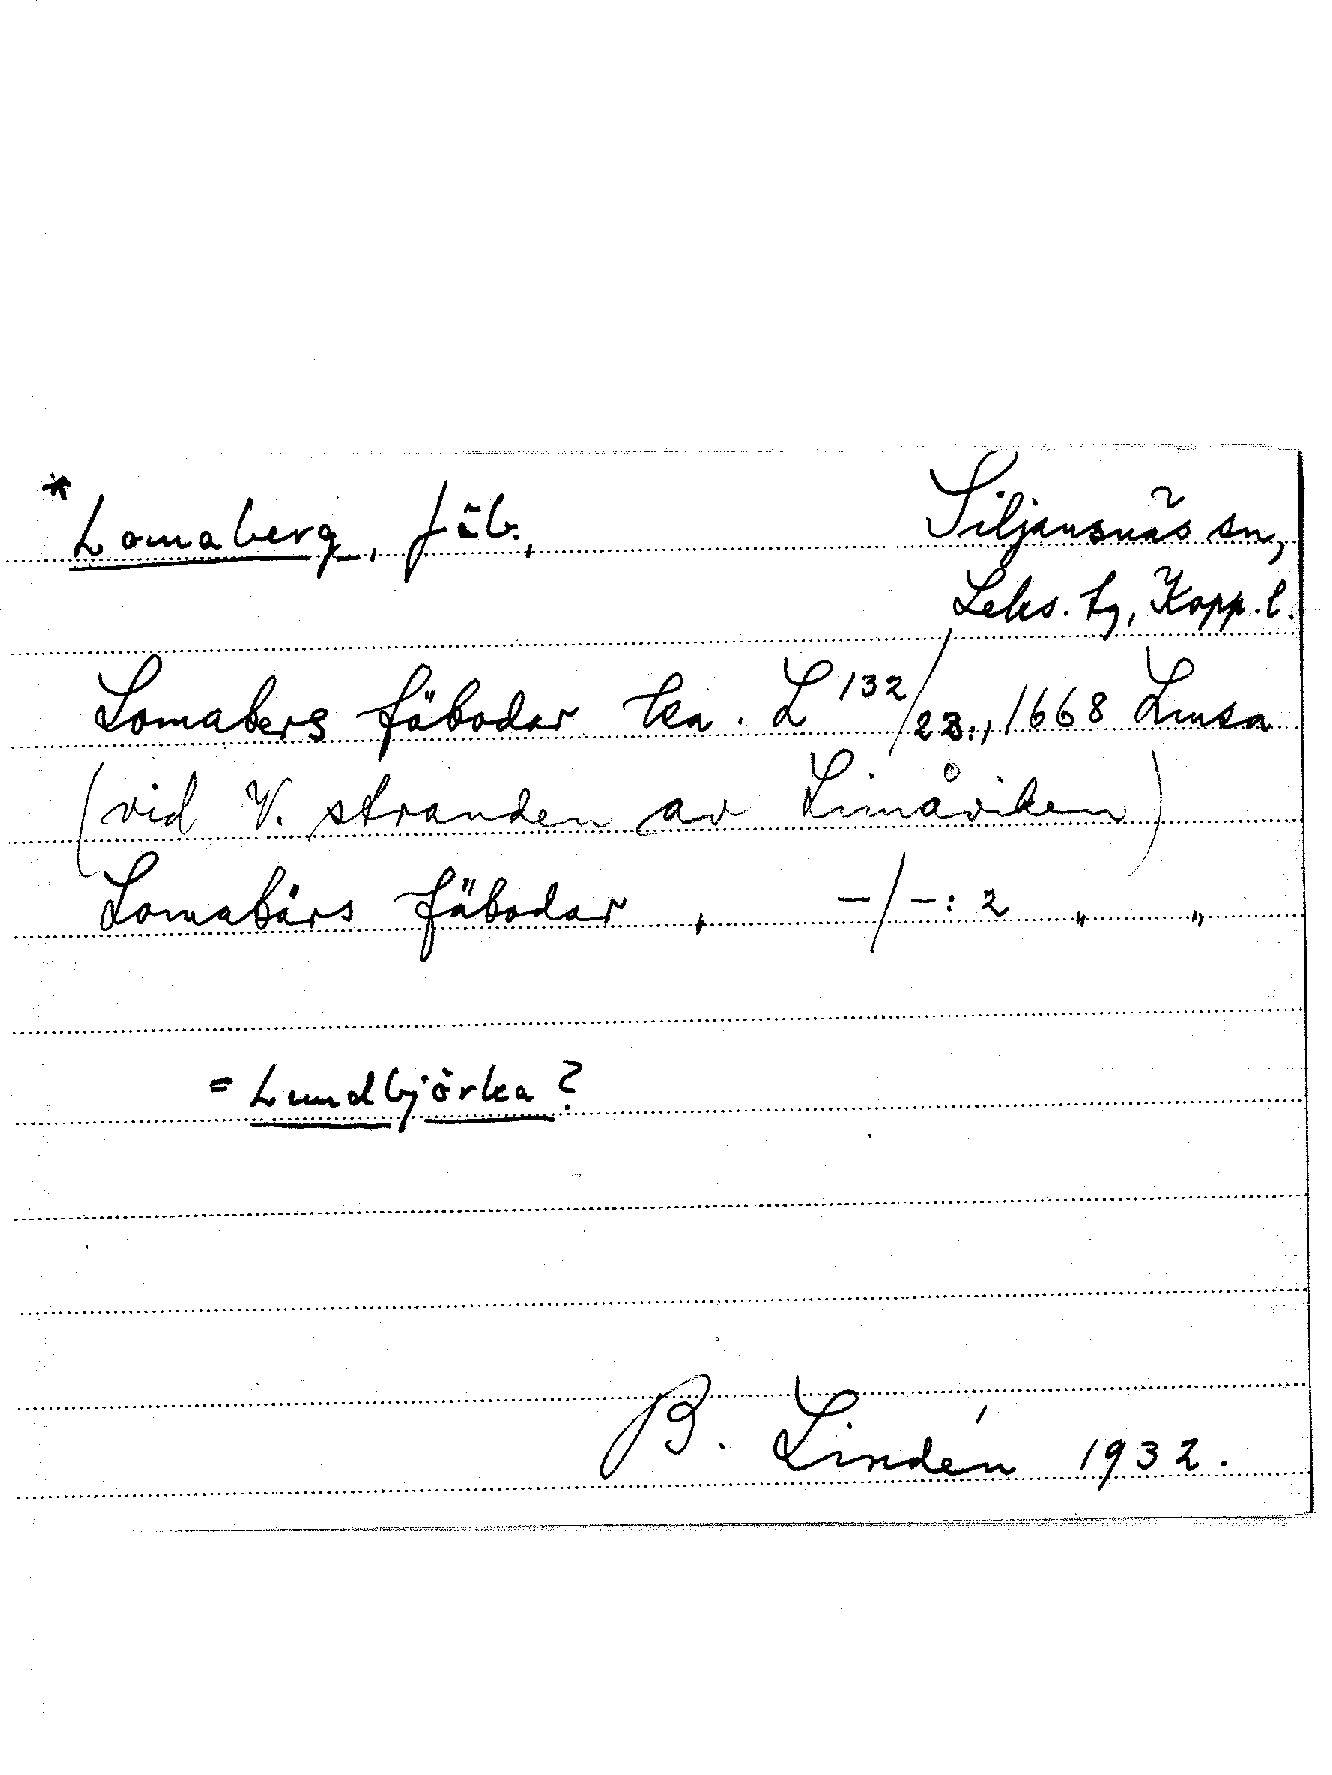 * Lomaberg, fäb., Siljansnäs sn,
Leks. tg, Kopp. l.
Lomabers fäbodar ka. L 132/23:, 1668 Lmsa
(vid V. stranden av Limåviken)
Lomabärs fäbodar , -/-: 2 " "
= Lundbjörka?
B. Lindén 1932.